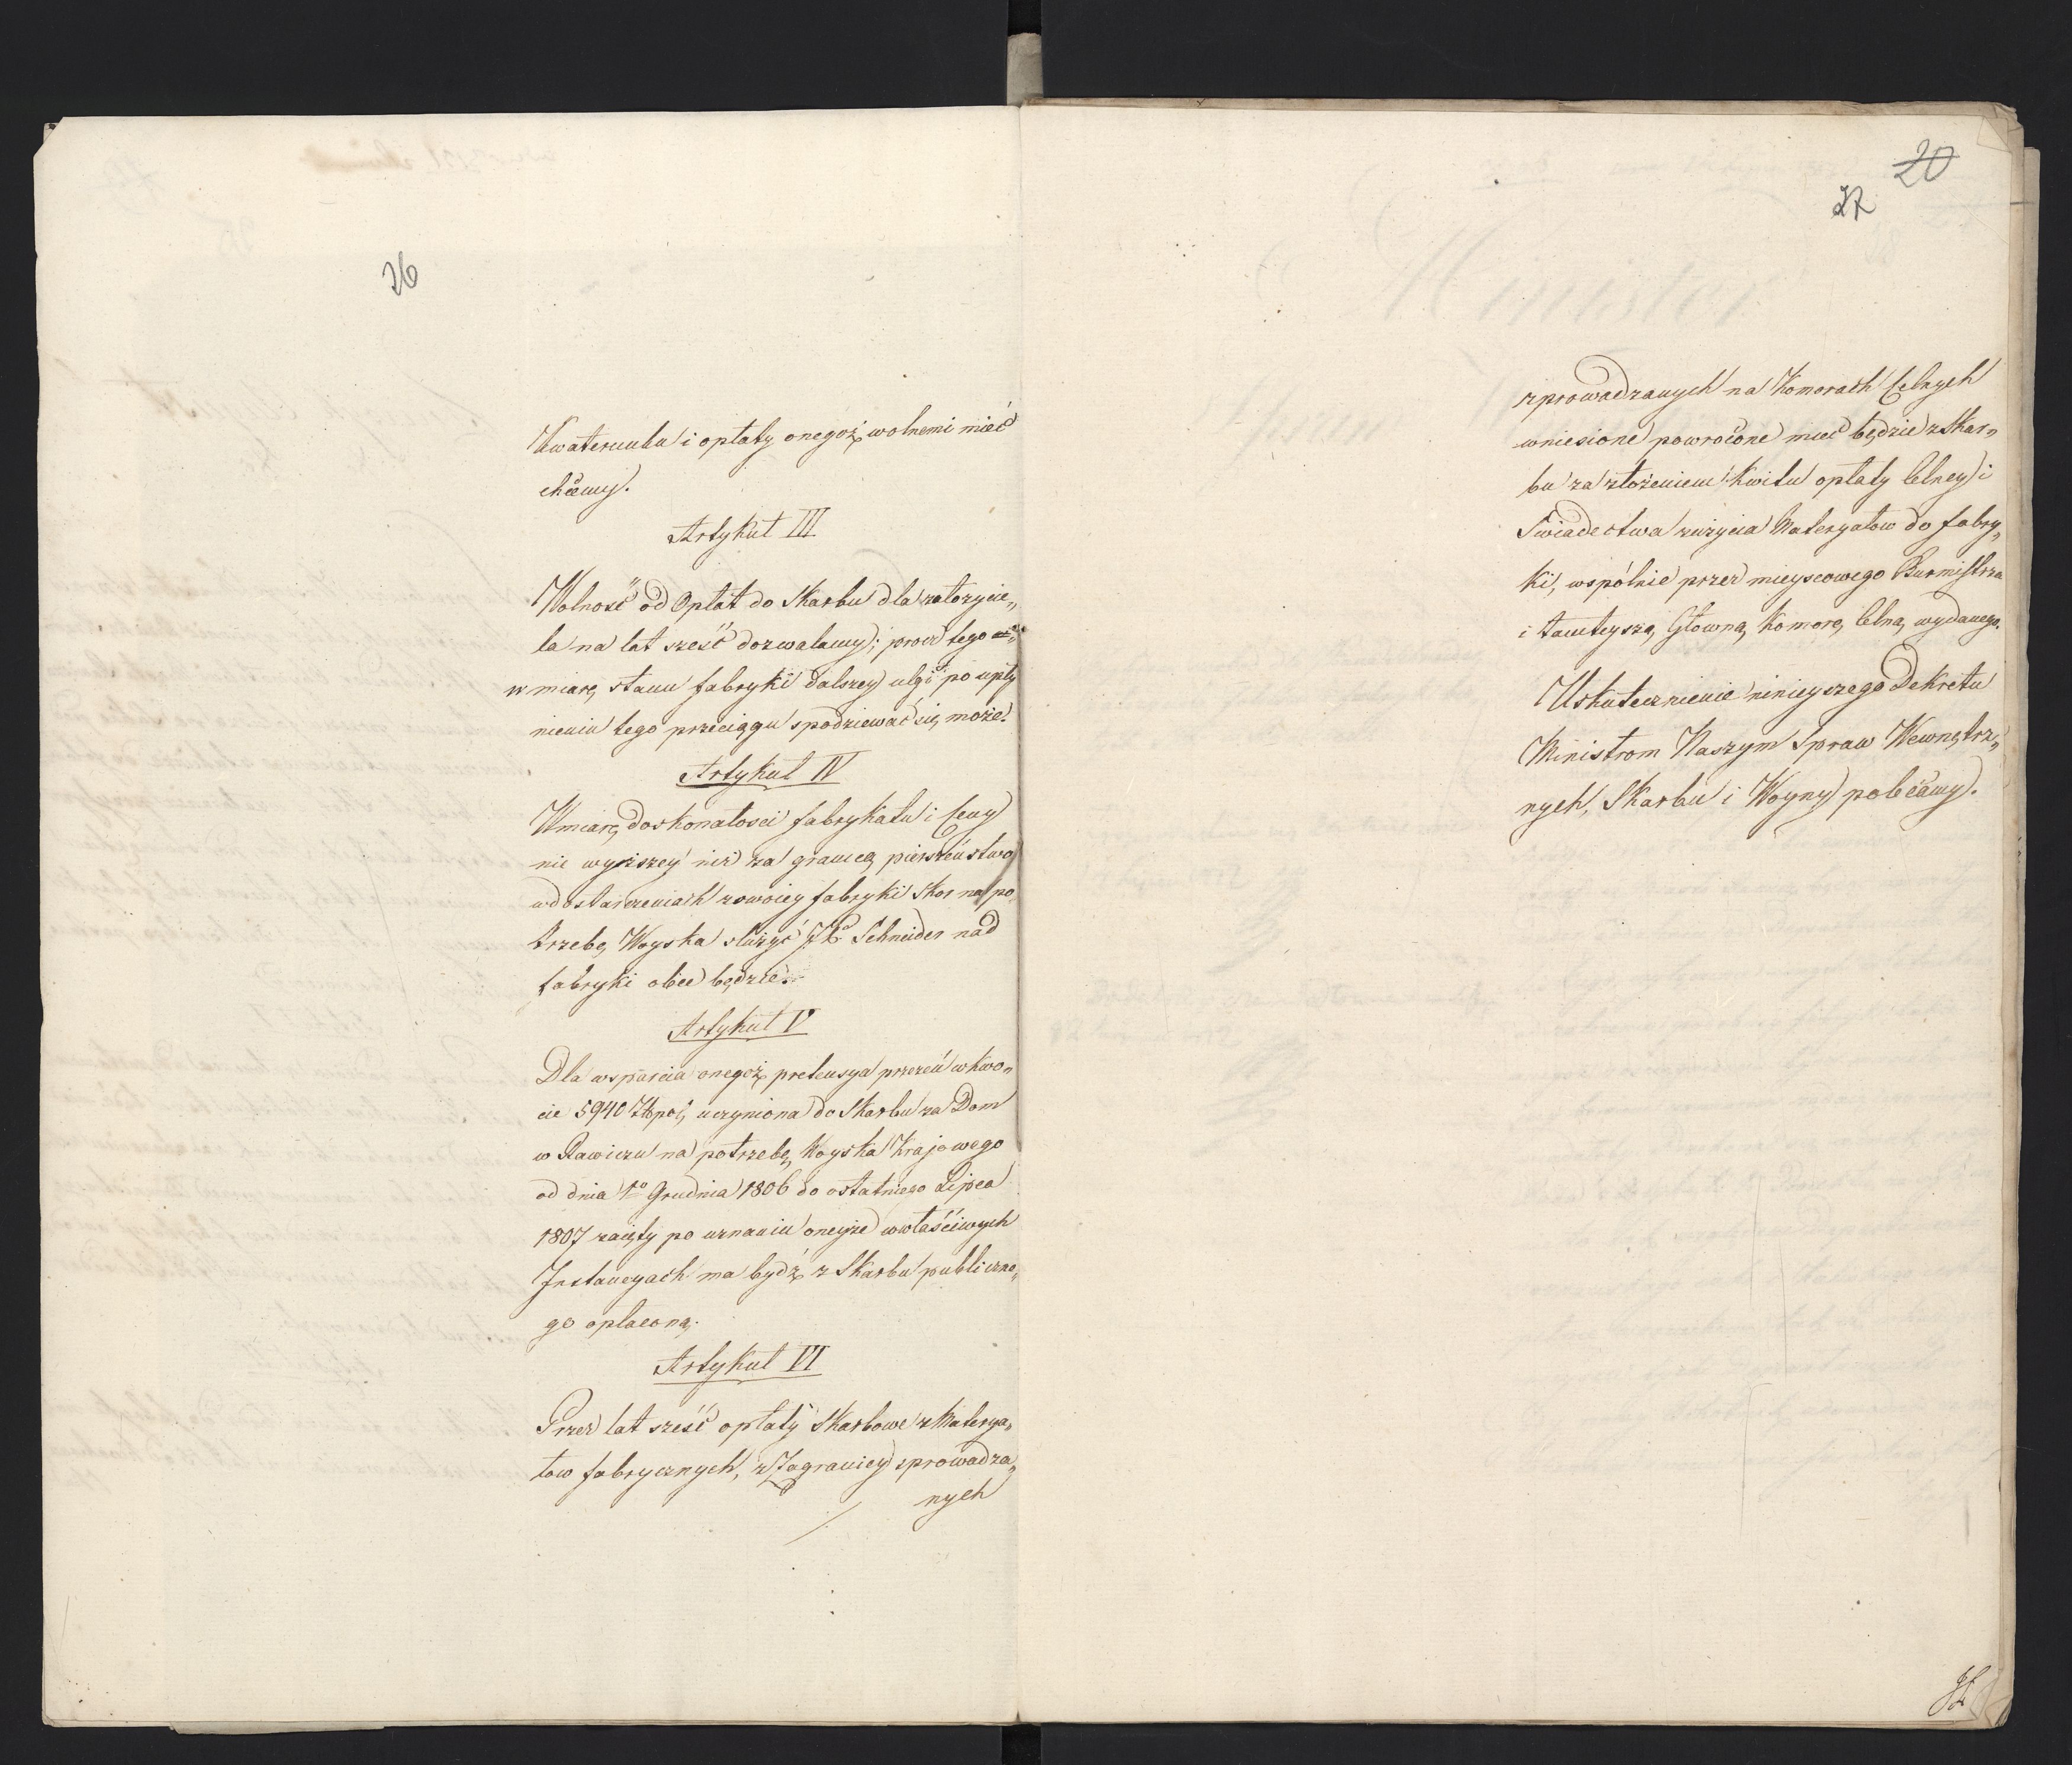 26
Kwaterunku i opłaty onegoż wolnemi mieć
chcemy.
Artykuł III
Wolność od Opłat do Skarbu dla założycie„
la na lat sześć dozwalamy; procz tego
w miarę stanu fabryki dalszey ulgi po upły
nieniu tego przeciągu spodziewać się może.
Artykuł IV
W miarę doskonałosci fabrykatu i Ceny
nie wyższey niż za granicą pierszeństwo
w dostarczeniach z swoiey fabryki Skor na po
trzebę Woyska służyć JP. Schneider nad
fabryki obce będzie.
Artykuł V
Dla wsparcia onegoż pretensya przezeń w kwo„
cie 5940 Złpol, uczyniona do Skarbu za Dom
w Rawiczu na potrzebę Woyska Krajowego
od dnia 1o Grudnia 1806 do ostatniego Lipca
1807 zaięty po uznaniu oneyże w właściwych
Instancyach ma bydź z Skarbu publiczne„
go opłaconą.
Artykuł VI
Przez lat sześć opłaty Skarbowe z Materya„
łow fabrycznych, z Zagranicy sprowadza„
nych
20
27
sprowadzanych na Komorach Celnych
wniesione powrocone mieć będzie z Skar„
bu za złożeniem Kwitu opłaty Celney i
Swiadectwa zużycia Materyałow do fabry„
ki, wspólnie przez mieyscowego Burmistrza
i tamteyszą Głowną Komorę Celną wydanego.
Uskutecznienie ninieyszego Dekretu
Ministrom Naszym Spraw Wewnętrz„
nych, Skarbu i Woyny polecamy.